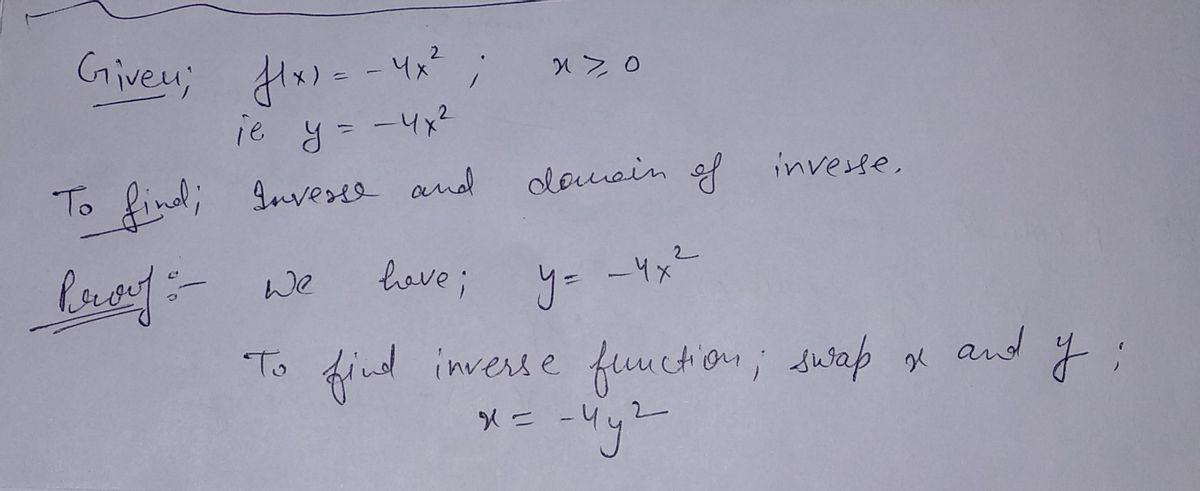 Given; f(x) = -4x² ; x ≥ 0
ie y = -4x²
To find; Inverse and domain of inverse.
Proof :- we have; y = -4x²
To find inverse function; swap x and y ;
x = -4y²